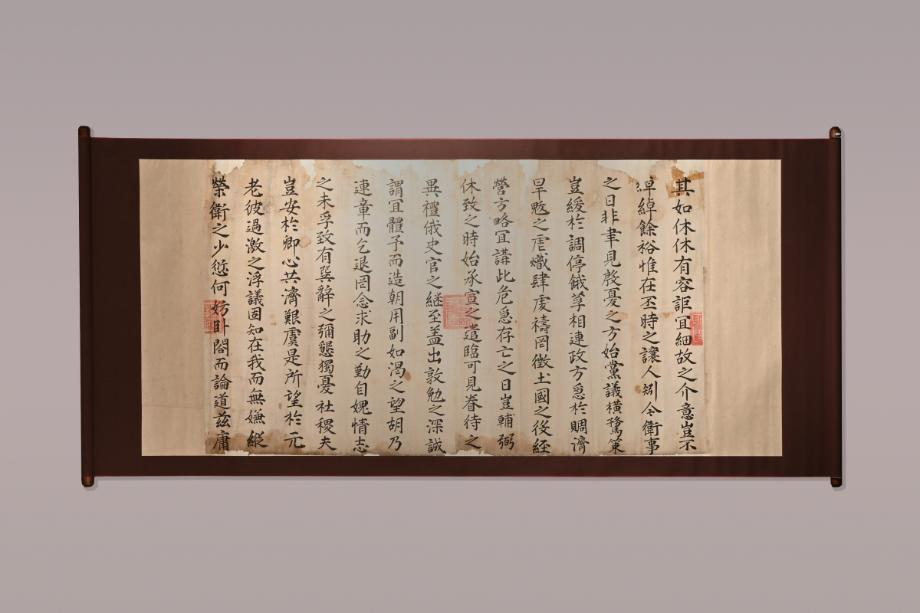 其如休休有容詎宜細故之介意豈不
綽綽餘裕惟在丕時之讓人矧今衛事
之日非聿見殷憂之方始黨議橫鶩兼
豈緩於調停餓莩相連政方急於賙濟
旱魃之虐熾肆虔禱罔徵土國之後經
營方略宜講此危急存亡之日豈輔弼
休致之時始承宣之遣臨可見眷待之
異禮俄史官之継至盖出敦勉之深誠
謂宜體予而造朝用副如渴之望胡乃
連章而乞退罔念求助之勤自媿情志
之未孚致有巽辭之彌懇獨憂社稷夫
豈安於卿心共濟艱虞是所望於元
老彼過激之浮議固知在我而無嫌縱
榮衛之少愆何妨卧閤而論道茲庸